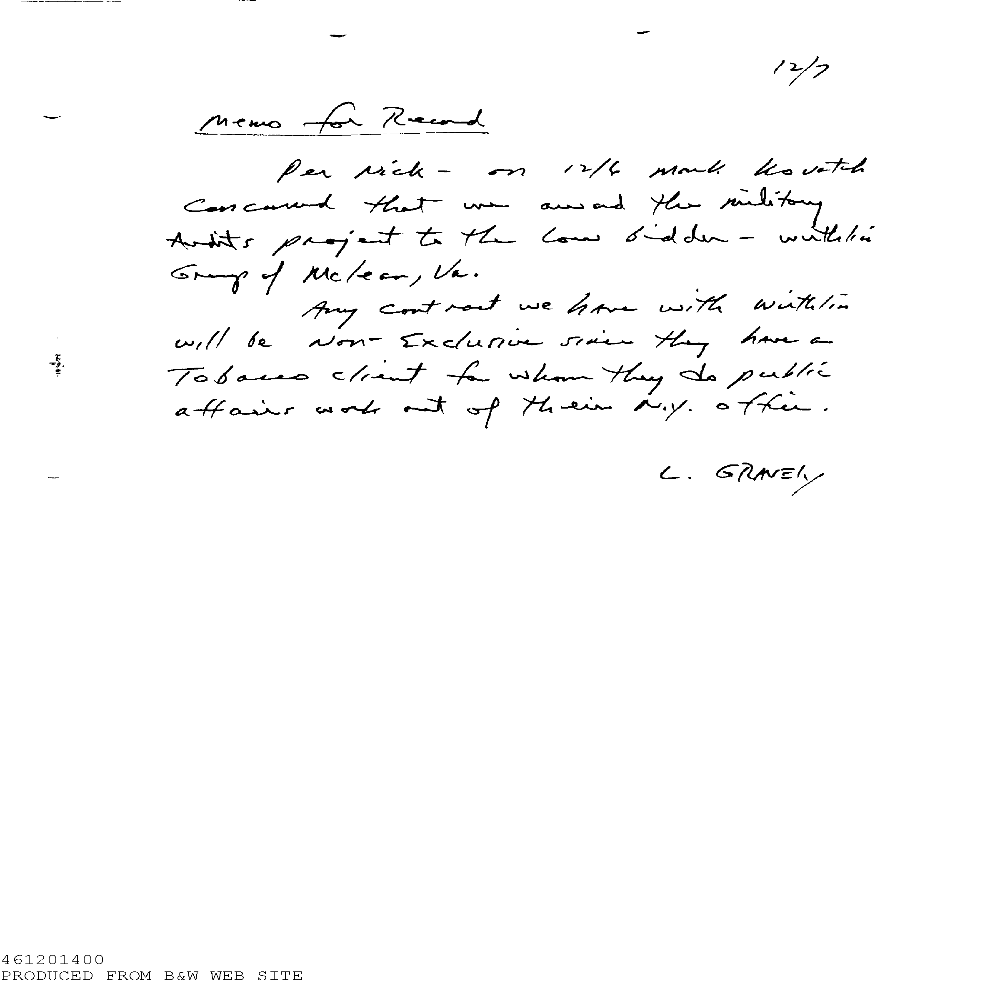 12/7
Memo for Record
Per Nick - on 12/6 Mark Kovatch
concurred that we award the military
Audits project to the low bidder - Wirthlin
Group of McLean, Va.
Any contract we have with Wirthlin
will be Non-Exclusive since they have a
Tobacco client for whom they do public
affairs work out of their N.Y. office.
L. GRAVELY
461201400
PRODUCED FROM B&W WEB SITE